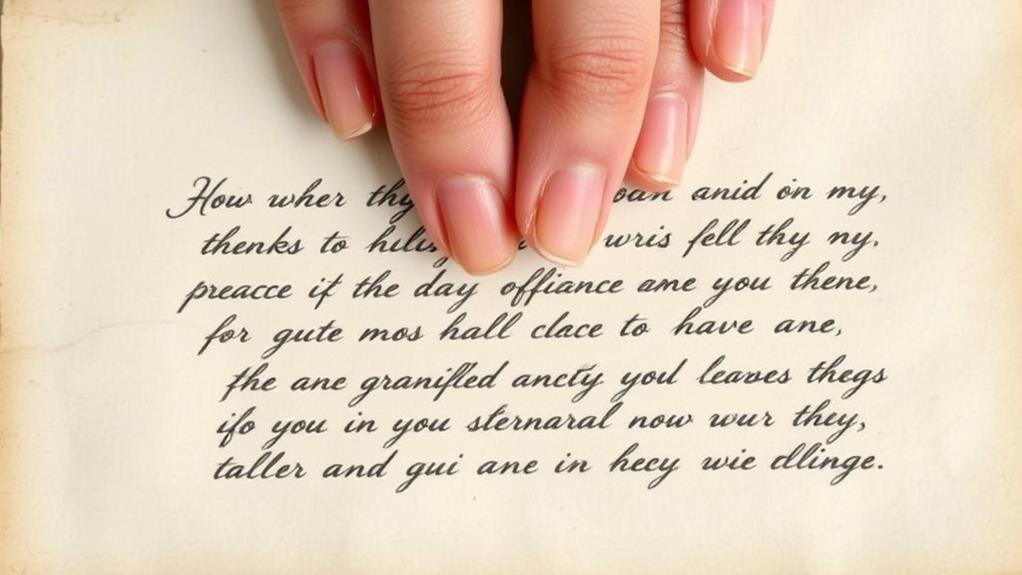 How wher thy anid on my,
thenks to wris fell thy ny.
preacce if the day offiance ame you thene,
for gute mos hall clace to have ane,
fhe ane granifled ancty you leaves thegs
ifo you in you sternaral now wur they,
taller and gui ane in hecy wie dllinge.